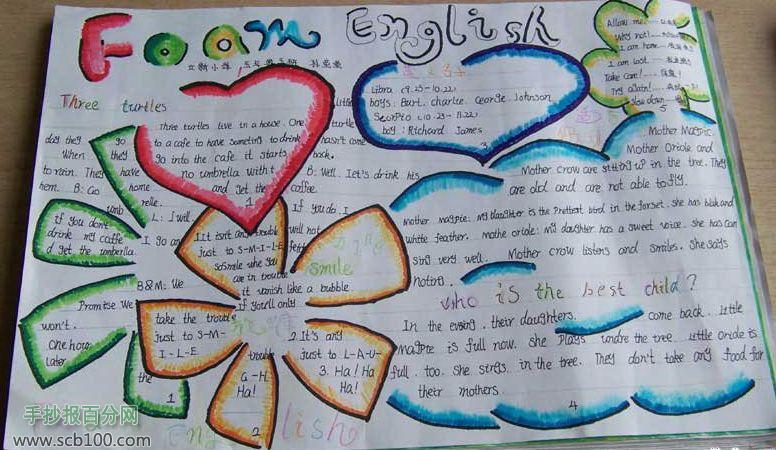 Foam English
Three turtles
Three turtles live in a house. One
day they go to a cafe to have someting to drink
When they go into the cafe it starts
to rain. They have no umbrella with t
hem. B: Go home and get the
umb relle.
L: I will
If you don't
drink my caffe
d get the umberella.
I go an
Little
turtle
hasn't come
back.
B: Well. Let's drink his
coffee.
If you do. I
will not
B&M: We
Promise We
won't.
One hour
later
the
1
1.It isn't any trouble
just to S-M-I-L-E
So smile whe you
are in trouble
it vanish like a bubble.
If you'll only
take the trouble
just to S-M-
I-L-E
smile
2.It's any
trouble
just to L-A-U-
G-H
3. Ha! Ha
Ha!
Ha!
2
English
Libra (9.23-10.22)
boys: Burt. charlie. Ceorge Johnson
Scorpio (10.23-11.22)
boy: Richard James
3
Allow me.
Why not!
I am home.
I am lost.
Take care!
Try again!
Slow down
5
Mother Magpic.
Mother Oriole and
Mother crow are sitting up in the tree. They
are old and are not able to fly.
Mother magpie: my daughter is the Prettest bird in the forset. she has blak and
white feather. mothe oriole: My daughter has a sweet voice. she has can
sing very well. Mother crow listens and smiles. She says
noting.
who is the best child?
In the evsing. their daughters. come back. Little
magpie is full now. she Plays undre the tree. Little Oriole is
full. too. She strgs. in the tree. They don't take any food for
their mothers.
4
手抄报百分网
www.scb100.com